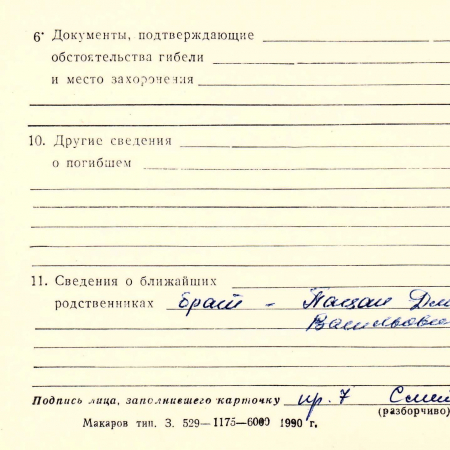 6. Документы, подтверждающие
обстоятельства гибели
и место захоронения
10. Другие сведения
о погибшем
11. Сведения о ближайших
родственниках брат -
Подпись лица, заполнившего карточку пр. 7
(разборчиво)
Макаров тип. З. 529—1175—6000 1990 г.